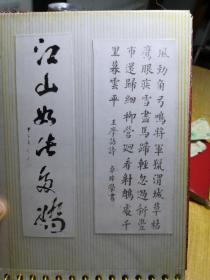 風勁角弓鳴將軍獵渭城草枯
鷹眼疾雪盡馬蹄輕忽過新豐
市還歸細柳營迴看射鵰處千
里暮雲平 王摩詰詩 學書
江山如此多嬌